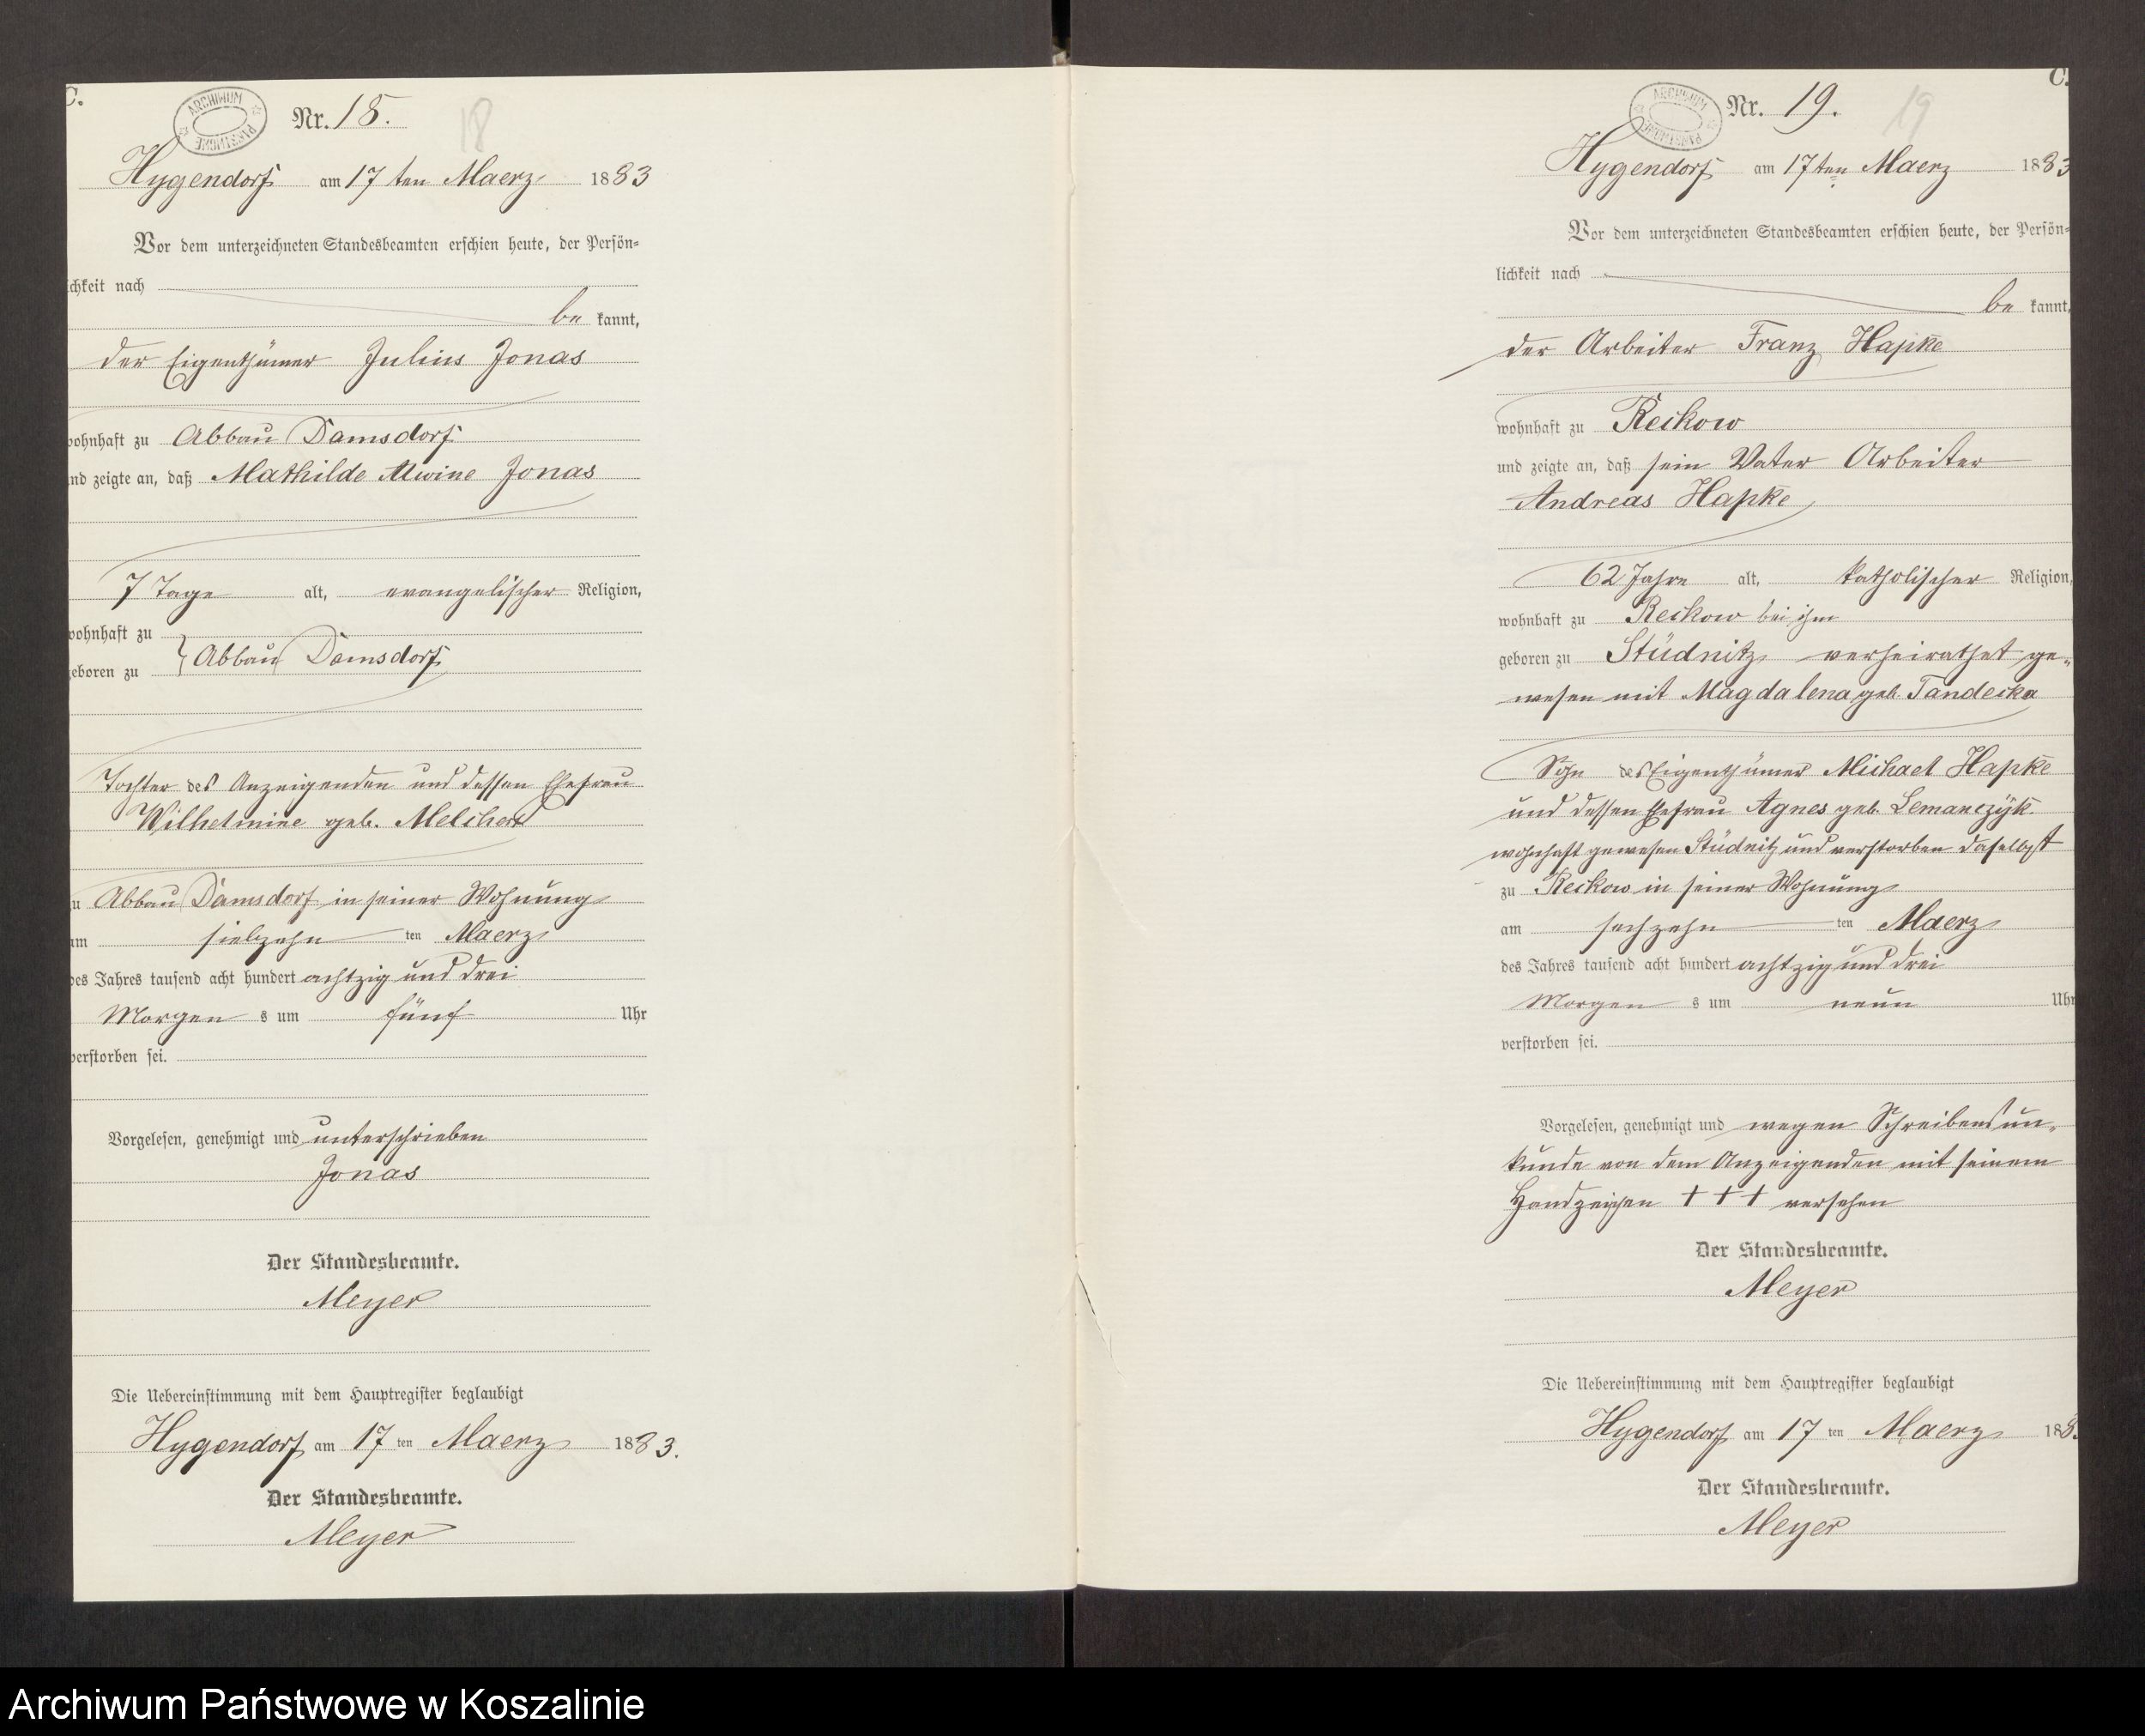 C.
ARCHIWUM PAŃSTWOWE
Nr. 18.
18
Hygendorf am 17 ten Maerz 1883
Vor dem unterzeichneten Standesbeamten erschien heute, der Persön-
ichkeit nach
be kannt,
der Eigenthümer Julius Jonas
wohnhaft zu Abbau Damsdorf
nd zeigte an, daß Mathilde Alwine Jonas
7 Tage alt, evangelischer Religion,
wohnhaft zu
geboren zu } Abbau Damsdorf
Tochter des Anzeigenden und dessen Ehefrau
Wilhelmine geb. Melchert
zu Abbau Damsdorf in seiner Wohnung
am siebzehn ten Maerz
des Jahres tausend acht hundert achtzig und drei
Morgen s um fünf Uhr
verstorben sei.
Vorgelesen, genehmigt und unterschrieben
Jonas
Der Standesbeamte.
Meyer
Die Uebereinstimmung mit dem Hauptregister beglaubigt
Hygendorf am 17 ten Maerz 1883.
Der Standesbeamte.
Meyer
C.
ARCHIWUM PAŃSTWOWE
Nr. 19.
19
Hygendorf am 17ten Maerz 1883
Vor dem unterzeichneten Standesbeamten erschien heute, der Persön-
lichkeit nach
be kannt,
der Arbeiter Franz Hapke
wohnhaft zu Reckow
und zeigte an, daß sein Vater Arbeiter
Andreas Hapke
62 Jahre alt, katholischer Religion,
wohnhaft zu Reckow bei ihm
geboren zu Stüdnitz verheirathet ge-
wesen mit Magdalena geb. Tandecka
Sohn des Eigenthümer Michael Hapke
und dessen Ehefrau Agnes geb. Lemanczyk
wohnhaft gewesen Stüdnitz und verstorben daselbst
zu Reckow in seiner Wohnung
am sechzehn ten Maerz
des Jahres tausend acht hundert achtzig und drei
Morgen s um neun Uhr
verstorben sei.
Vorgelesen, genehmigt und wegen Schreibensun-
kunde von dem Anzeigenden mit seinem
Handzeichen + + + versehen
Der Standesbeamte.
Meyer
Die Uebereinstimmung mit dem Hauptregister beglaubigt
Hygendorf am 17 ten Maerz 188
Der Standesbeamte.
Meyer
Archiwum Państwowe w Koszalinie